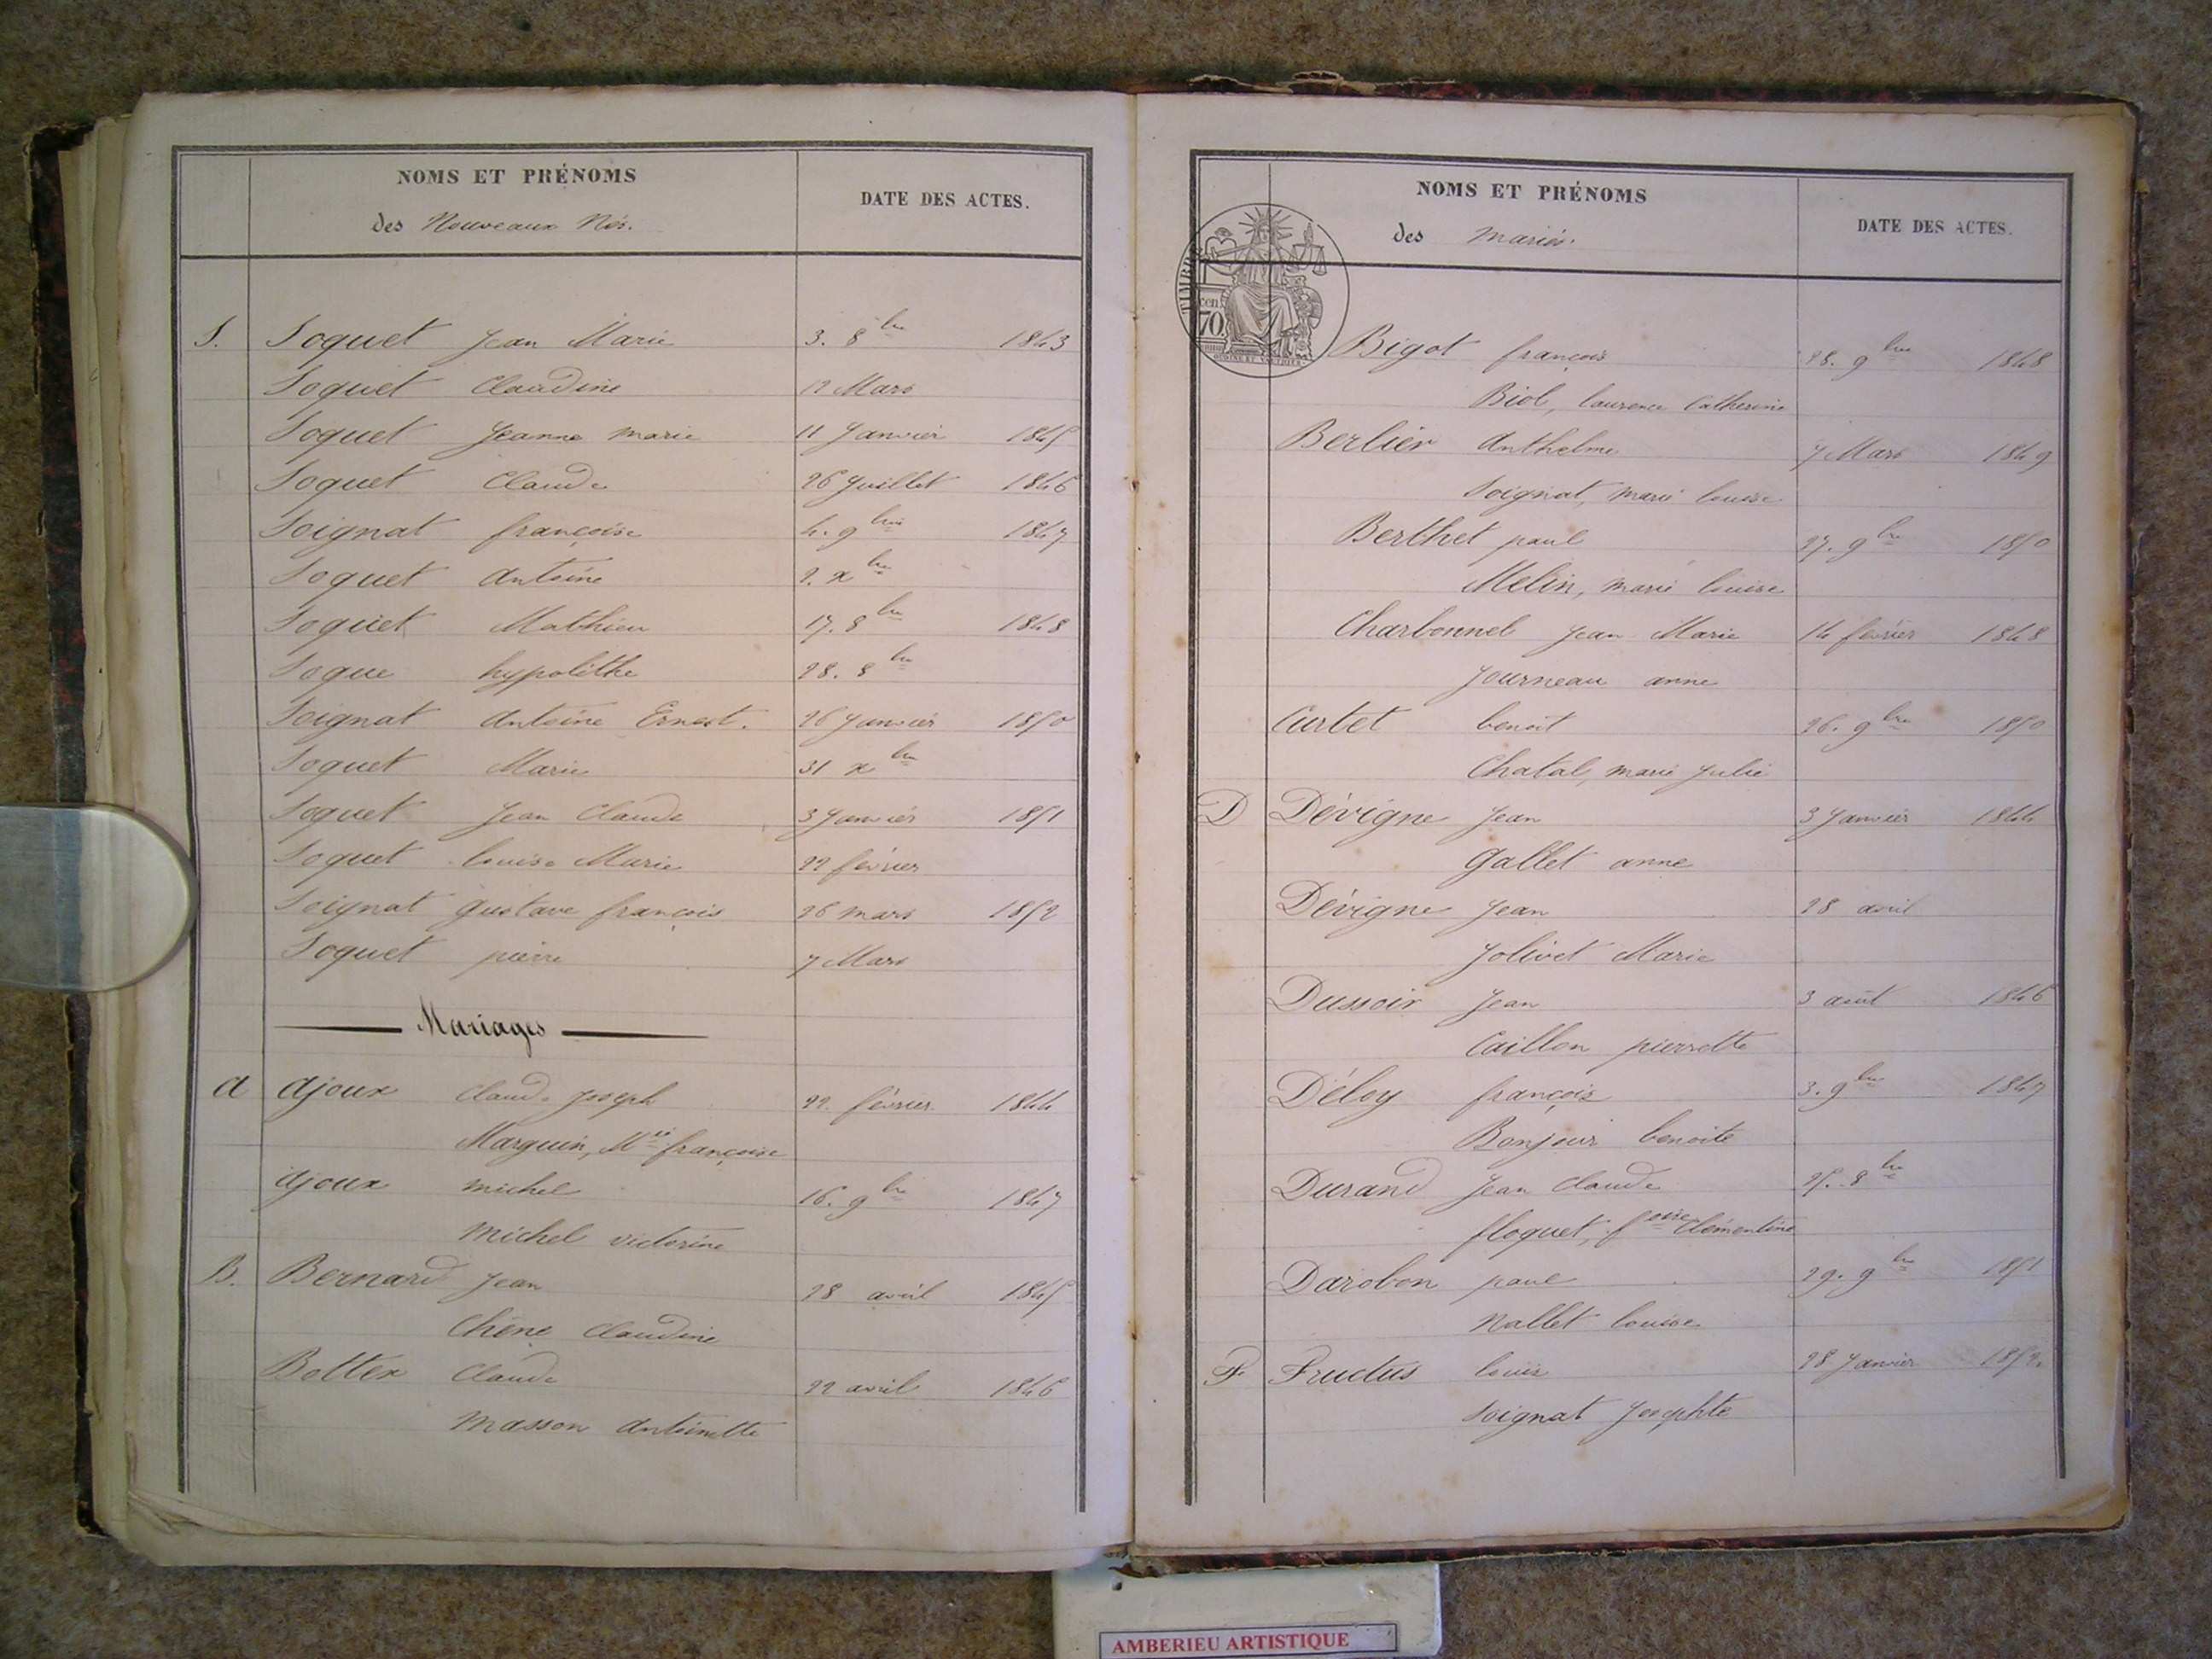 NOMS ET PRÉNOMS
des Nouveaux Nés.
DATE DES ACTES.
S. Soquet Jean Marie 3. 8bre 1843
Soquet Claudine 12 Mars
Soquet Jeanne marie 11 Janvier 1845
Soquet Claude 26 Juillet 1846
Soignat françoise 4. 9bre 1847
Soquet Antoine 2. xbre
Soquet Mathieu 17. 8bre 1848
Soque hypolithe 28. 8bre
Soignat Antoine Ernest. 26 Janvier 1850
Soquet Marie 31 xbre
Soquet Jean Claude 3 Janvier 1851
Soquet louise Marie 22 février
Soignat gustave françois 26 mars 1852
Soquet pierre 7 Mars
Mariages
A Ajoux Claude Joseph 22. février 1844
Marguin, Mie françoise
Ajoux michel 16. 9bre 1847
Michel victorine
B. Bernard Jean 28 avril 1845
Chêne Claudine
Bottex Claude 22 avril 1846
Masson Antoinette
NOMS ET PRÉNOMS
des mariés.
DATE DES ACTES.
TIMBRE
70
Bigot françois 28. 9bre 1848
Biol, laurence Catherine
Berlier Anthelme 7 Mars 1849
Soignat, marie louise
Berthet paul 27. 9bre 1850
Melin, marie louise
Charbonnel Jean Marie 14 février 1848
Journeau anne
Curtet benoit 26. 9bre 1850
Chatal, marie Julie
D Dévigne Jean 3 Janvier 1844
Gallet anne
Dévigne Jean 28 avril
Jolivet Marie
Dussoir Jean 3 août 1846
Caillon pierrette
Déloy françois 3. 9bre 1847
Bonjour benoite
Durand Jean Claude 25. 8bre
floquet, foise Clémentine
Darobon paul 29. 9bre 1851
Nallet louise
F Fructus louis 28 Janvier 1852.
Soignat Josephte
AMBERIEU ARTISTIQUE